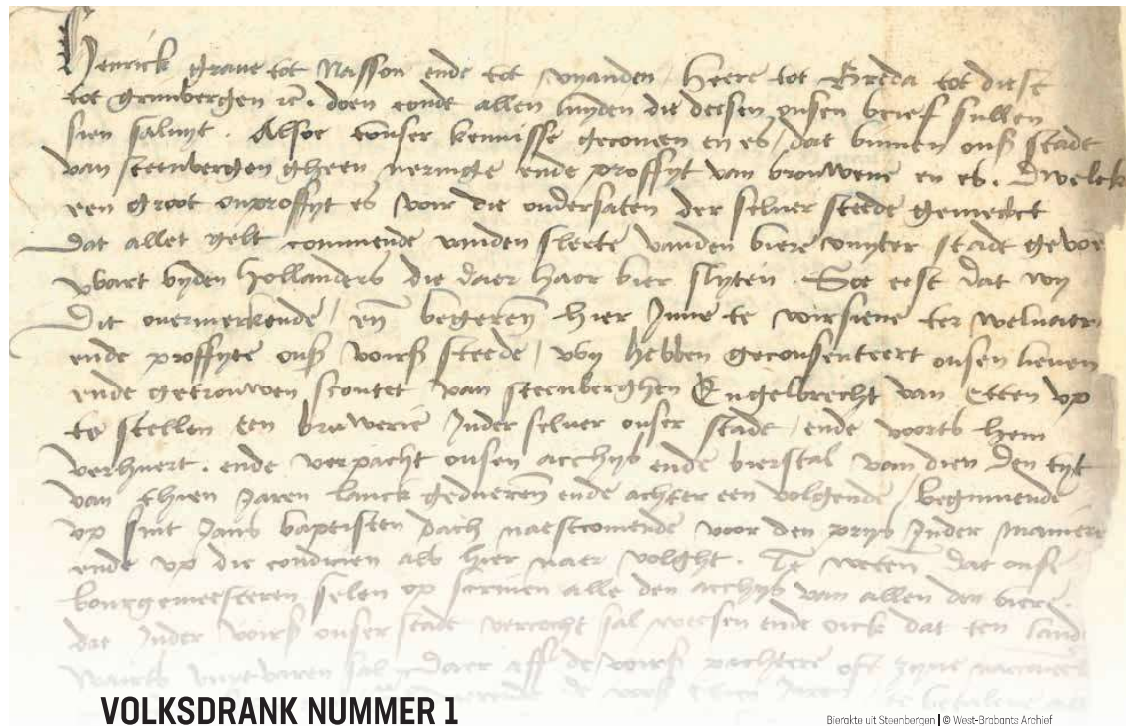 Henrick grave tot Nassou ende tot vyanden heere tot Breda tot diest
tot grimbergen etc. doen conde allen luyden die desen onsen brief sullen
sien saluyt. Alsoe tonser kennisse gecomen en es dat binnen onser stadt
van steenbergen gheen neringe ende proffyt van brouwene en es. Dwelck
een groot onproffyt es voir die ondersaten der selver stede gemerct
dat allet gelt commende vanden sleete vanden biere vuyter stadt gevoe
wart byden hollanders die daer haer bier slyten. Soe eest dat wy
Dit overmerkende en begeren hier Inne te voirsiene ter welvaert
ende proffyte onser voirs stede wy hebben geconsenteert onsen lieven
ende getrouwen scoutet van steenberghen Engelbrecht van Etten op
te stellen een bruwerie Inder selver onser stadt ende voorts hem
verhuert. ende verpacht onsen acchys ende bierstal van dien den tyt
van thien Jaren lanck geduerende ende achter een volgende beginnende
op sint Jans baptisten dach naestcomende voor den prys Inder maniere
ende op die conditien als hier naer volght. Te weten dat onse
bourgemeesteren selen op scriven alle den acchys van allen den biere
dat Inder voirs onser stadt vercocht sal wesen ende oick dat ten lande
waerts vuytvaren sal daer aff de voirs pachtere oft zyne
VOLKSDRANK NUMMER 1
Bierakte uit Steenbergen | © West-Brabants Archief